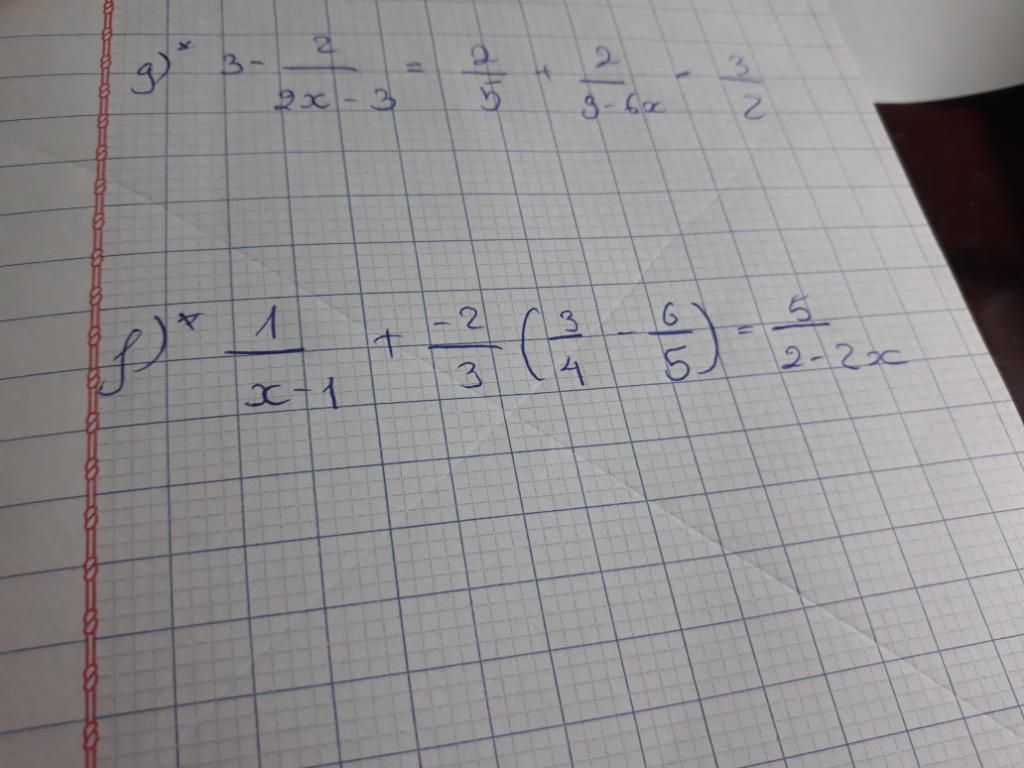 g)* 3 - 2/(2x - 3) = 2/5 + 2/(9 - 6x) - 3/2
f)* 1/(x - 1) + -2/3 (3/4 - 6/5) = 5/(2 - 2x)